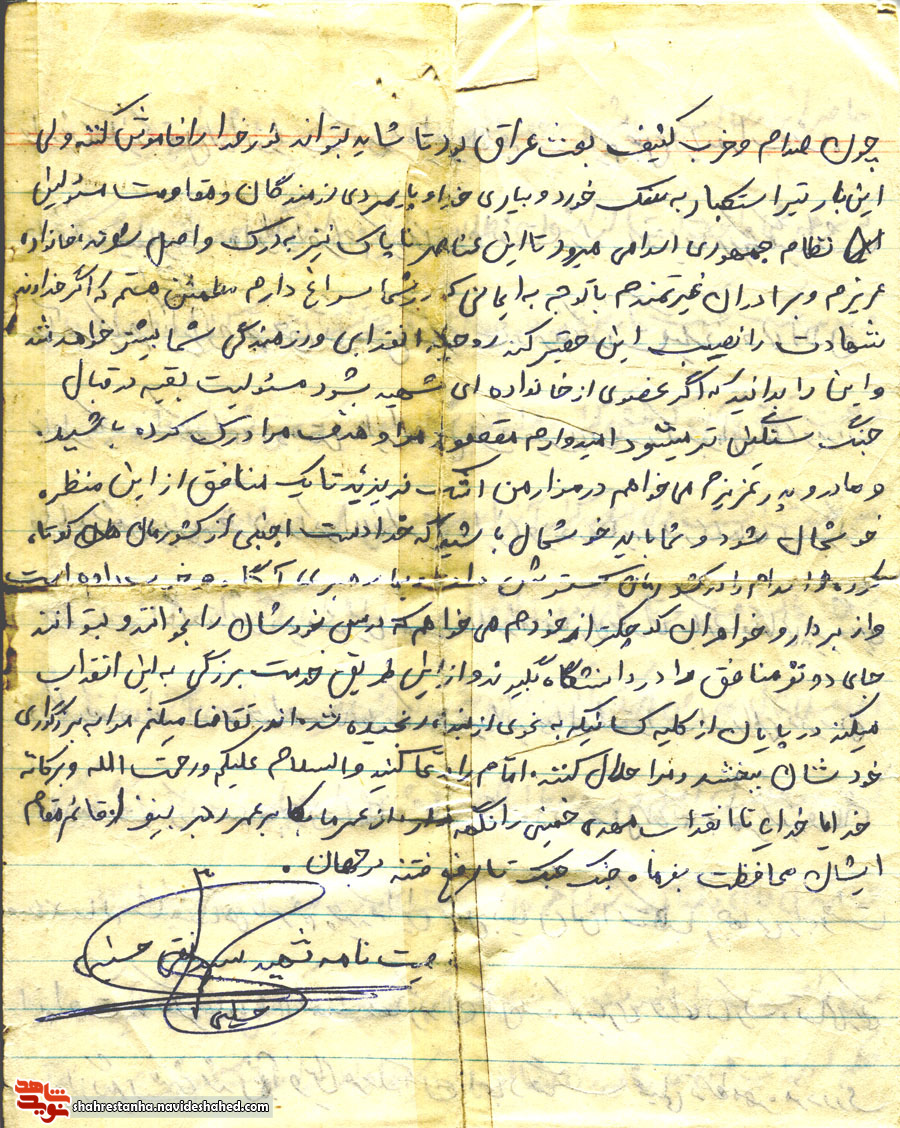 چون صدام و حزب کثیف بعث عراق بود تا شاید بتواند نور خدا را خاموش کنند ولی
این بار تیر استکبار به سنگ خورد و بیاری خدا و پایمردی رزمندگان و مقاومت مسئولین
نظام جمهوری اسلامی میرود تا این عناصر ناپاک نیز به درک واصل شوند، خانواده
عزیزم و برادران غیرتمندم با توجه به ایمانی که در شما سراغ دارم مطمئن هستم که اگر خداوند
شهادت را نصیب این حقیر کند روحیه انقلابی و رزمندگی شما بیشتر خواهد شد
و این را بدانید که اگر عضوی از خانواده ای شهید بشود مسئولیت بقیه در قبال
جنگ سنگین تر میشود امیدوارم مقصود مرا و هدف مرا درک کرده باشید.
و مادر و پدر عزیزم می خواهم در مزار من اشک نریزید تا یک منافق از این منظره
خوشحال شود و شما باید خوشحال باشید که خدا دست اجنبی از کشورمان کوتاه
کرده و اسلام را در کشورمان گسترش
و از برادر و خواهران کوچکتر از خودم می خواهم که درس خودشان را بخوانند و بتوانند
جای دو نفر منافق را در دانشگاه بگیرند و از این طریق خدمت بزرگی به این انقلاب
میکنند در پایان از کلیه کسانیکه به نحوی از بنده رنجیده شده اند تقاضا میکنم مرا به بزرگواری
خودشان ببخشند و مرا حلال کنند. امام را دعا کنید والسلام علیکم و رحمت الله و برکاته
خدایا خدایا تا انقلاب مهدی خمینی را نگهدار از عمر ما بکاه بر عمر رهبر بیفزا از قائم مقام
ایشان محافظت بفرما. جنگ جنگ تا رفع فتنه در جهان.
وصیت نامه شهید سید نقی حسینی
حسینی
نوید شاهد
shahrestanha.navideshahed.com